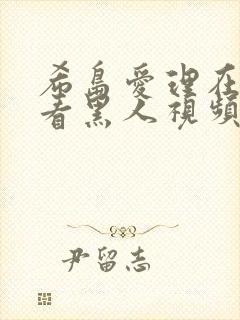 希島愛理在
看黑人視頻
尹留志